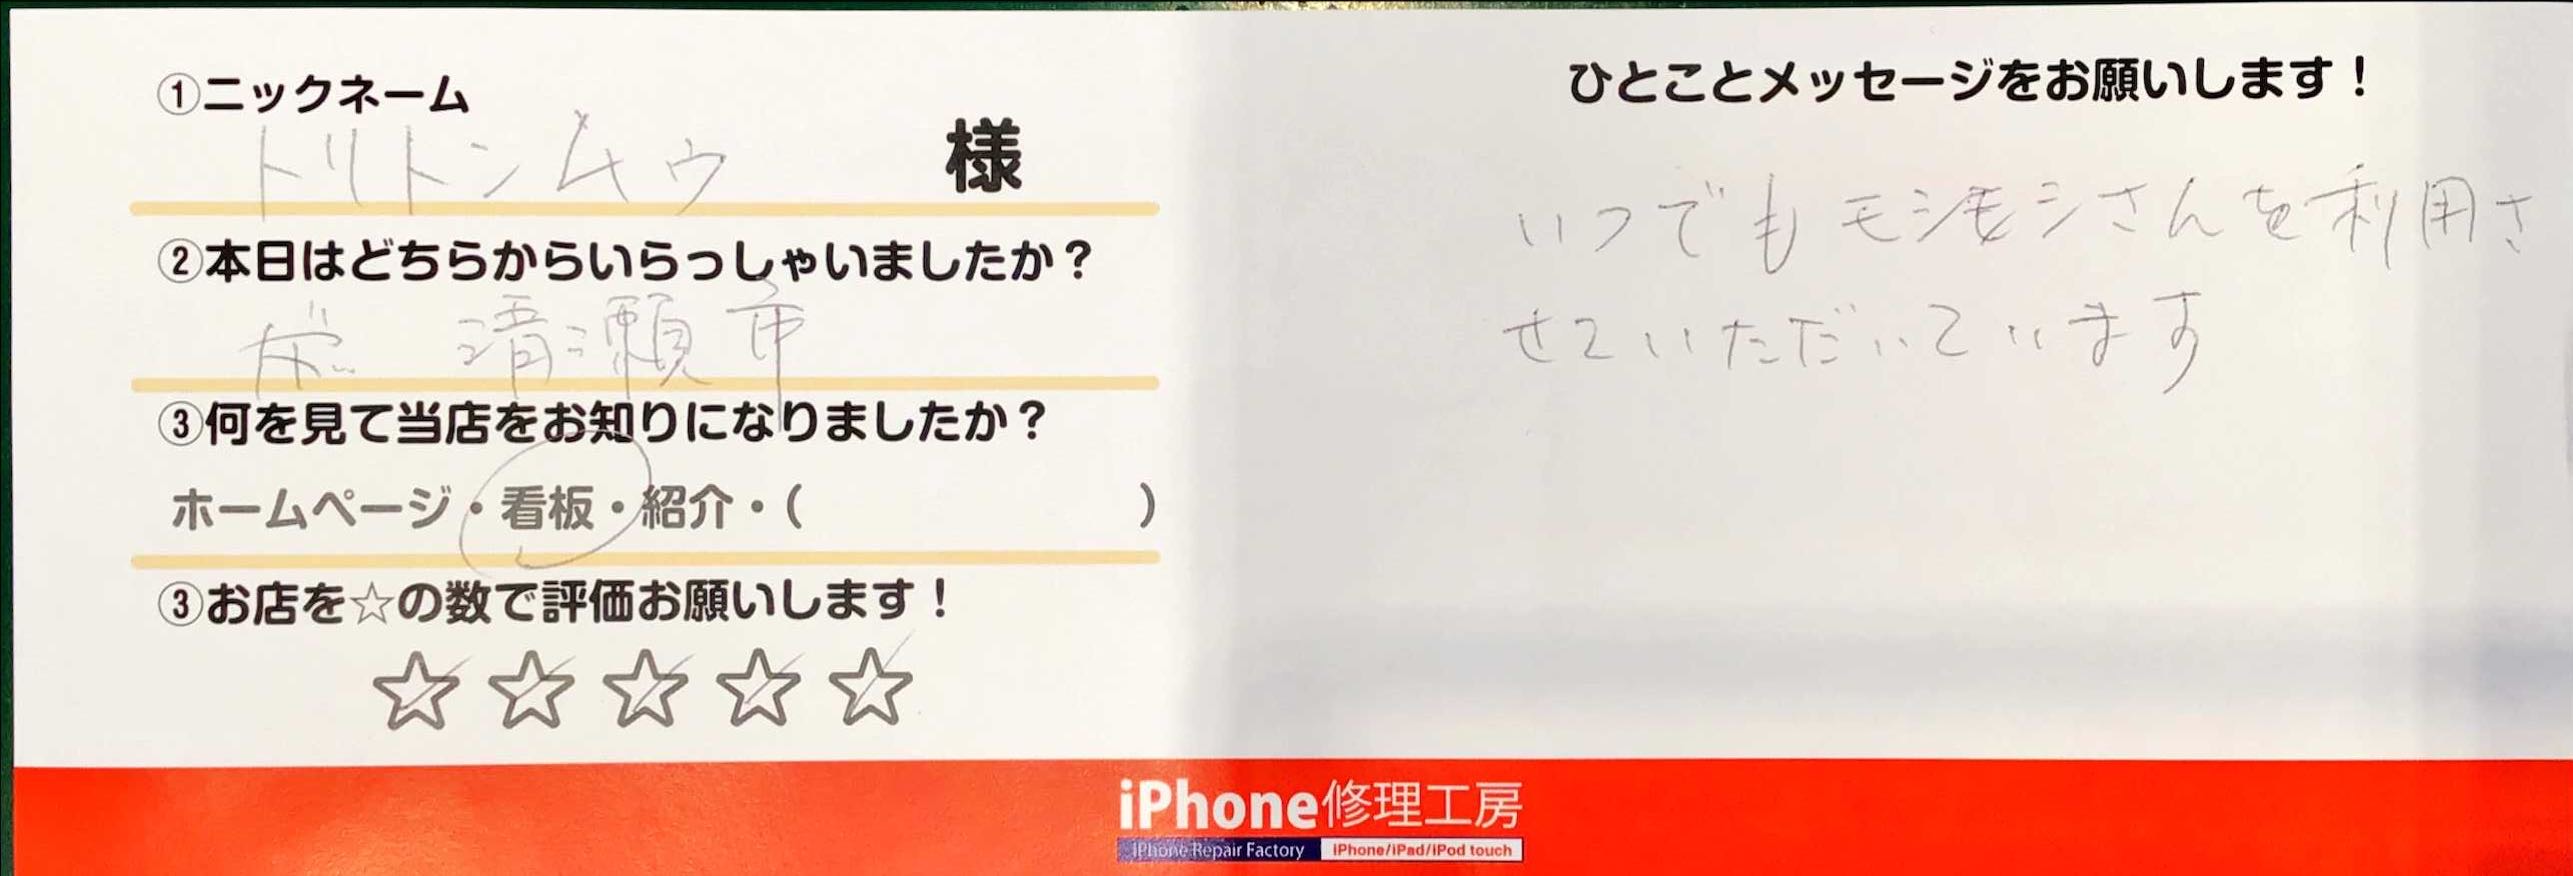 ①ニックネーム
トリトンムゥ 様
②本日はどちらからいらっしゃいましたか？
清瀬市
③何を見て当店をお知りになりましたか？
ホームページ・看板・紹介・( )
③お店を☆の数で評価お願いします！
☆☆☆☆☆
ひとことメッセージをお願いします！
いつでもモシモシさんを利用さ
せていただいています
iPhone修理工房
iPhone Repair Factory iPhone/iPad/iPod touch